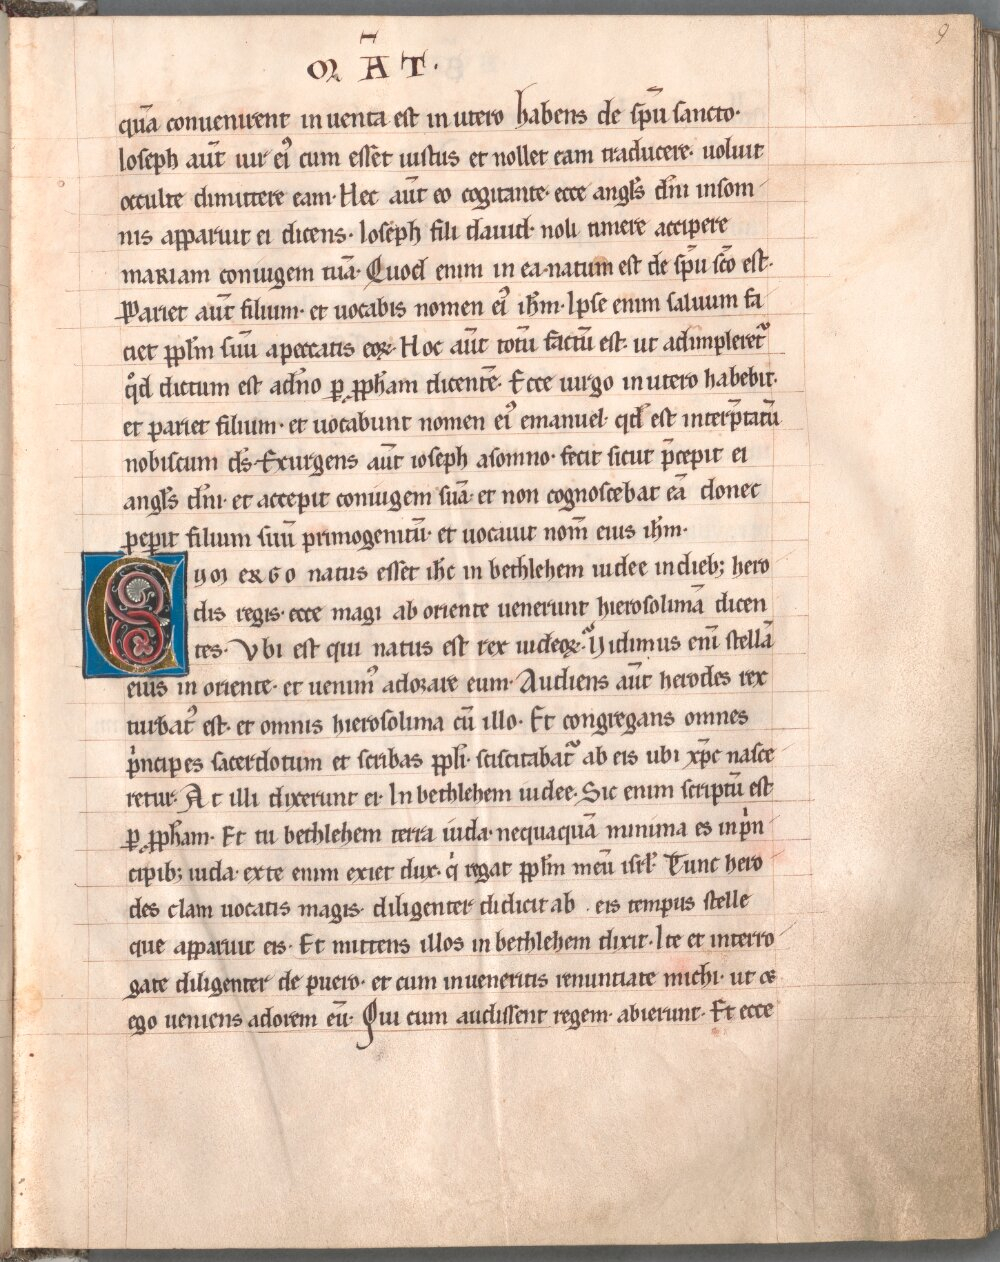 9
M̄AT·
quā conuenirent inuenta est in utero habens de sp̄u sancto·
Ioseph aūt uir ei᾽ cum esset iustus et nollet eam traducere· uoluit
occulte dimittere eam· Hec aūt eo cogitante· ecce angl̄s dn̄i in som
nis apparuit ei dicens· Ioseph fili dauid· noli timere accipere
mariam coniugem tuā· Quod enim in ea natum est de sp̄u sc̄o est·
Pariet aūt filium· et uocabis nomen ei᾽ ih̄m· Ipse enim saluum fa
ciet ppl̄m suū a peccatis eoꝝ· Hoc aūt totū factū est· ut adimpleret᷑
qd̄ dictum est a dn̄o ꝑ ꝓph̄am dicentē· Ecce uirgo in utero habebit·
et pariet filium· et uocabunt nomen ei᾽ emanuel· qd̄ est interp̄tatū
nobiscum ds̄· Exurgens aūt ioseph a somno· fecit sicut p̄cepit ei
angl̄s dn̄i· et accepit coniugem suā· et non cognoscebat eā donec
peperit filium suū primogenitū· et uocauit nom̄ eius ih̄m·
Cum ergo natus esset ih̄c in bethlehem iudee in dieb; hero
dis regis· ecce magi ab oriente uenerunt hierosolimā dicen
tes· Vbi est qui natus est rex iudeoꝝ· Vidimus eni̅ stellā
eius in oriente· et uenim᾽ adorare eum· Audiens aūt herodes rex
turbat᾽ est· et omnis hierosolima cū illo· Et congregans omnes
pͥncipes sacerdotum et scribas ppl̄i· sciscitabat᷑ ab eis ubi xp̄c nasce
retur· At illi dixerunt ei· In bethlehem iudee· Sic enim scriptū est
ꝑ ꝓph̄am· Et tu bethlehem terra iuda· nequaquā minima es in pͥn
cipib; iuda· ex te enim exiet dux· qͥ regat ppl̄m meū isrl̄· Tunc hero
des clam uocatis magis· diligenter didicit ab eis tempus stelle
que apparuit eis· Et mittens illos in bethlehem dixit· Ite et interro
gate diligenter de puero· et cum inueneritis renuntiate michi· ut et
ego ueniens adorem eū· Qui cum audissent regem· abierunt· Et ecce